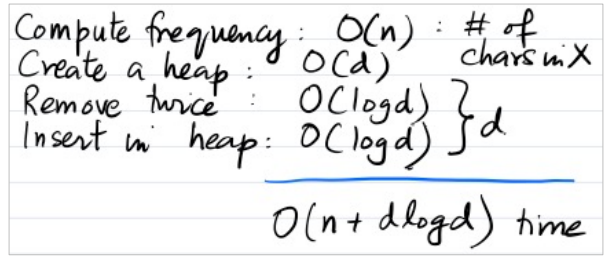 Compute frequency : O(n) : # of
chars in X
Create a heap : O(d)
Remove twice : O(log d) } d
Insert in heap : O(log d)
O(n + d log d) time